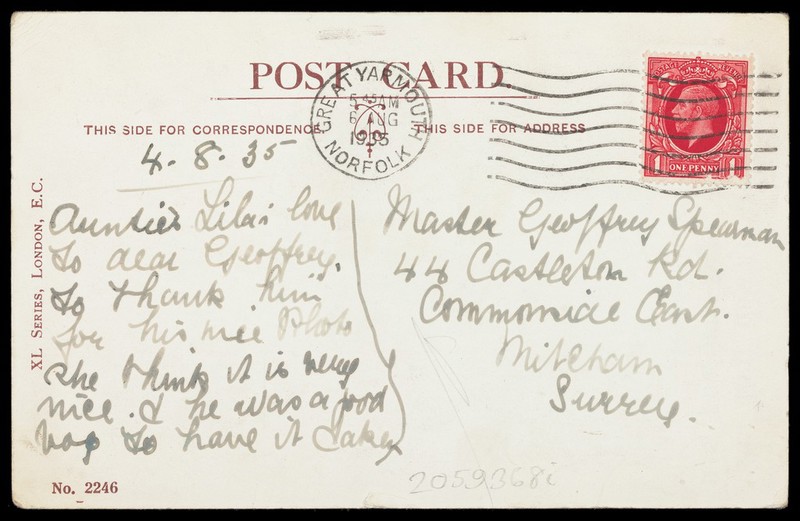 POST CARD.
THIS SIDE FOR CORRESPONDENCE
THIS SIDE FOR ADDRESS
GREAT YARMOUTH
5 45 AM
6 AUG
1935
NORFOLK
POSTAGE REVENUE
1 ONE PENNY 1
4.8.35
Auntie Lila's love
to dear Geoffrey.
to thank him
for his nice Photo
she think it is very
nice. & he was a good
boy to have it taken
Master Geoffrey Spearman
44 Castleton Rd.
Commonside East.
Mitcham
Surrey.
XL SERIES, LONDON, E.C.
No. 2246
2059368i